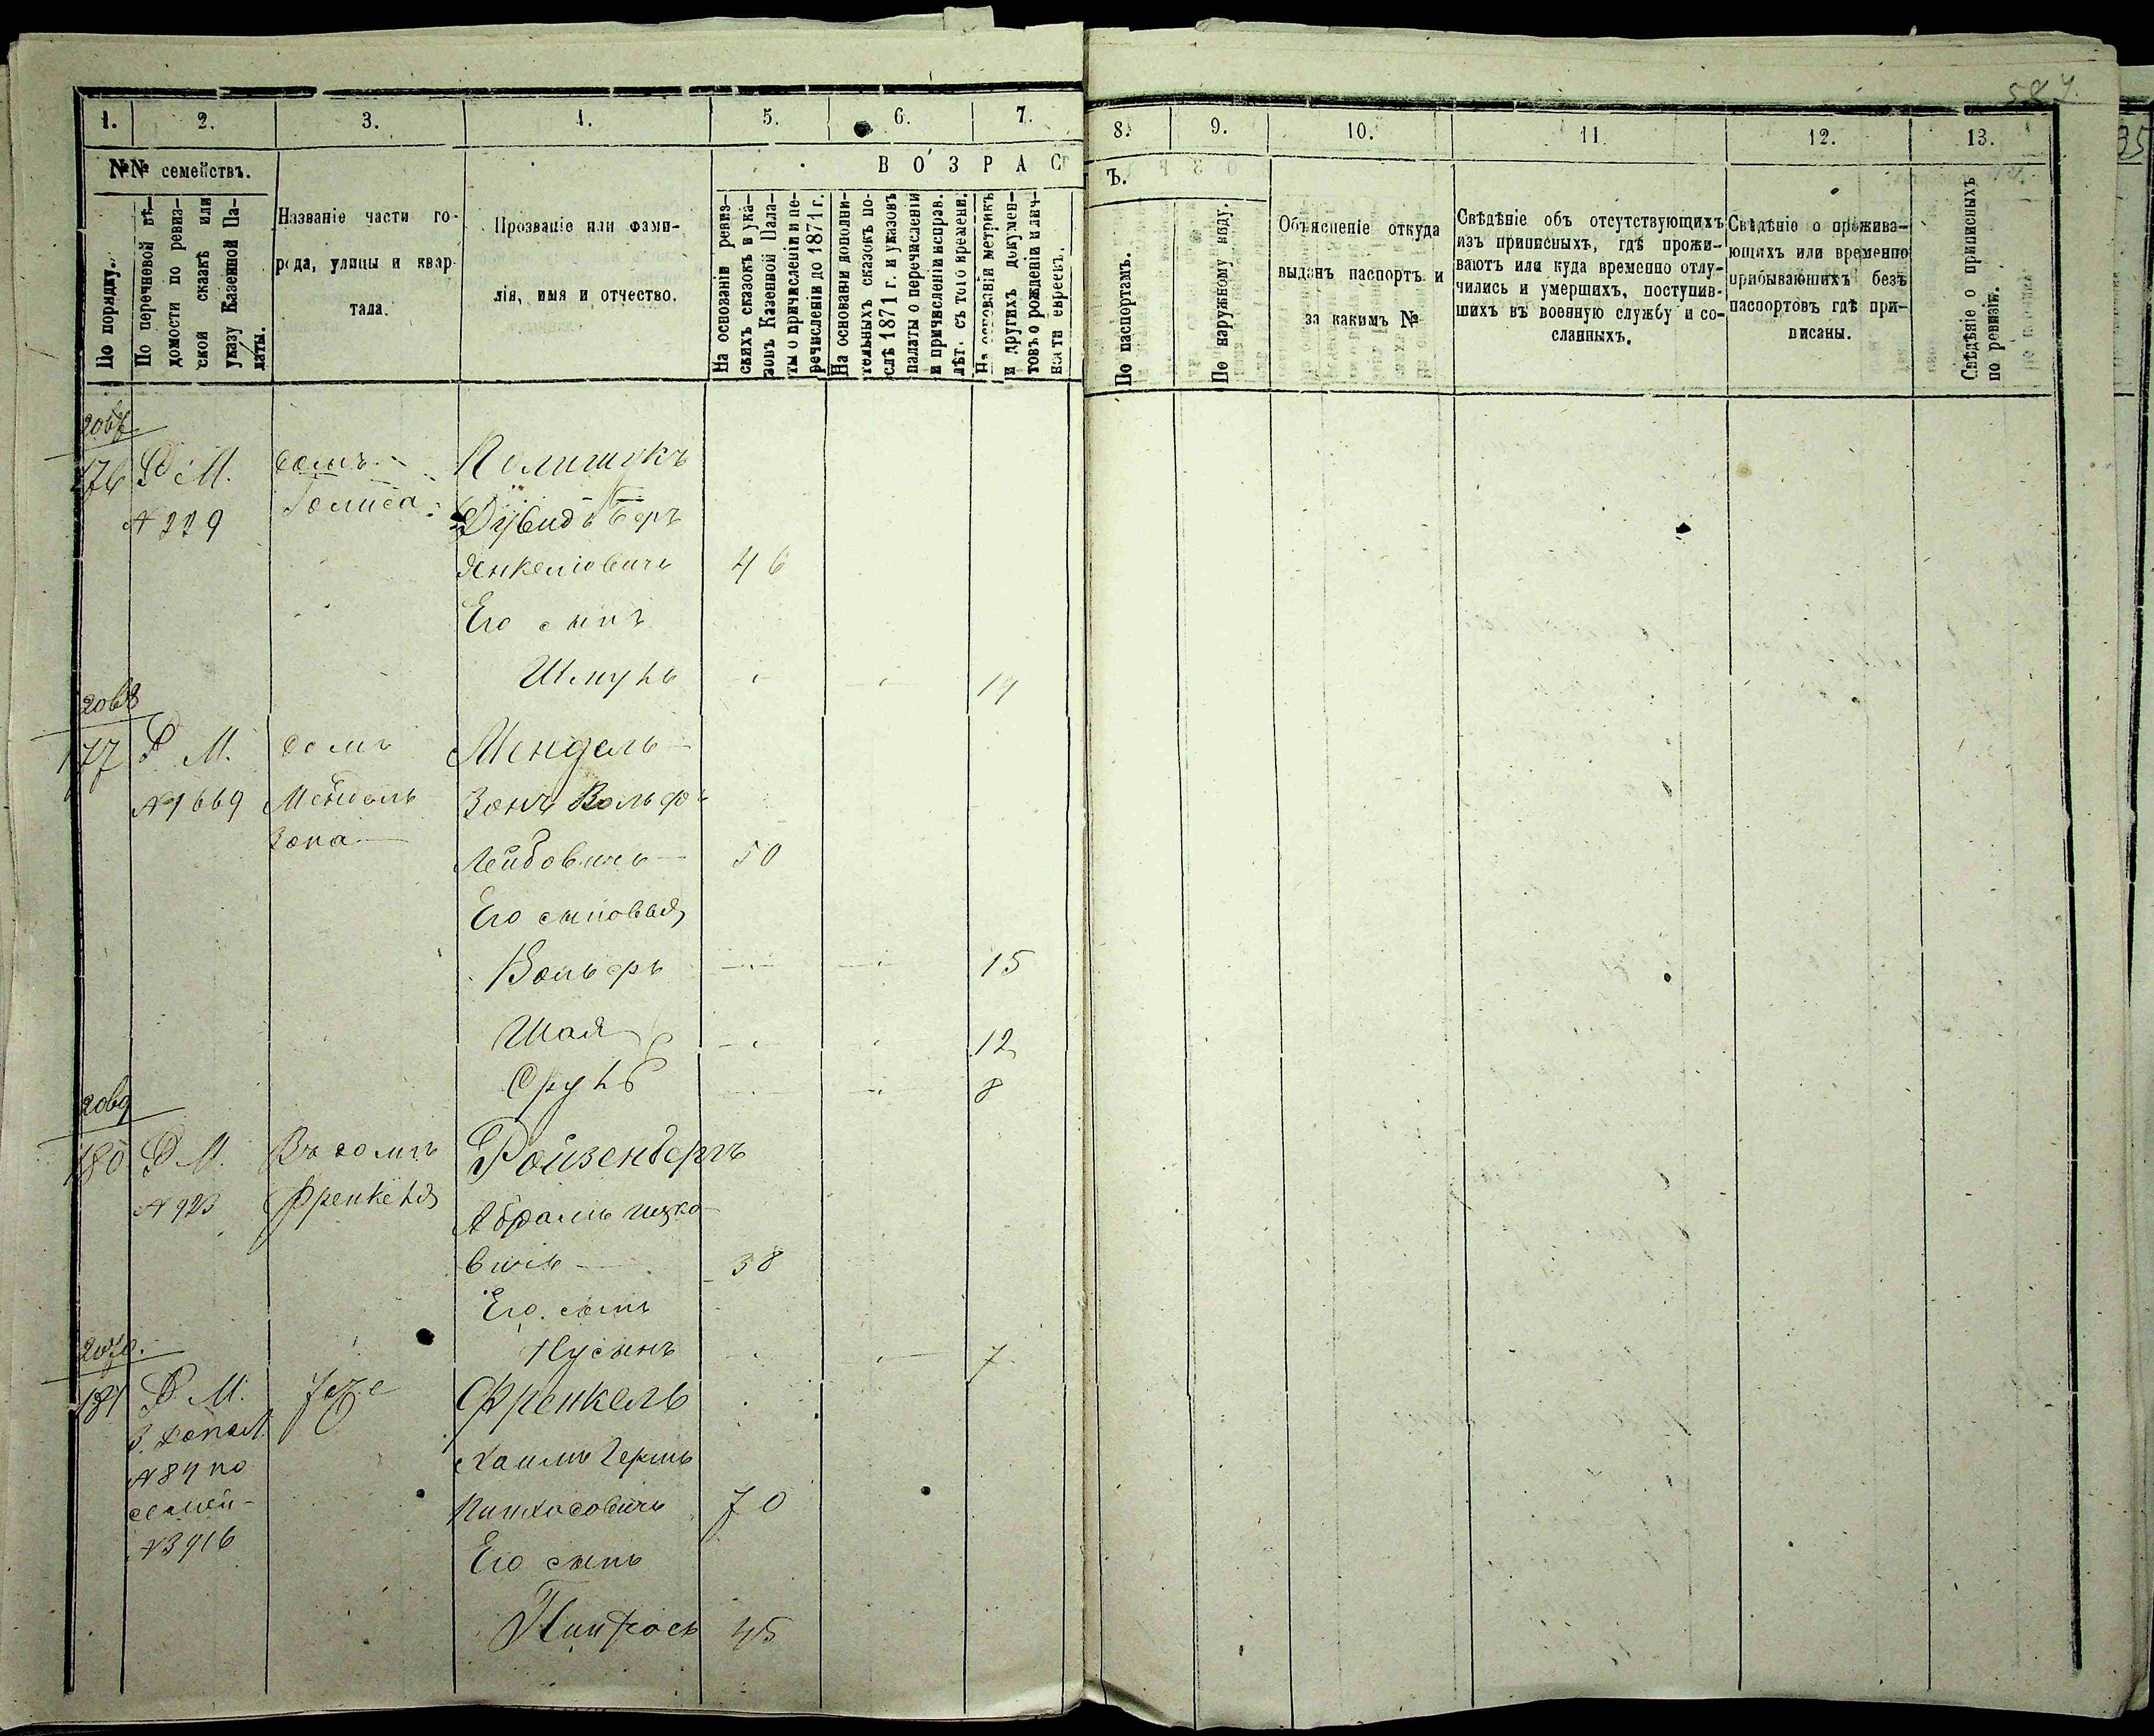 584
1. 2. 3. 4. 5. 6. 7.
№№ семействъ.
По порядку.
По перечневой вѣ-
домости по ревиз-
ской сказкѣ или
указу Казенной Па-
латы.
Названіе части го-
рода, улицы и квар-
тала.
Прозваніе или фами-
лія, имя и отчество.
ВОЗРАСТ
На основаніи ревиз-
скихъ сказокъ и ука-
зовъ Казенной Пала-
ты о причисленіи и пе-
речисленіи до 1871 г.
На основаніи дополни-
тельныхъ сказокъ по-
слѣ 1871 г. и указовъ
палаты о перечисленіи
и причисленіи исправ.
лѣт. съ того времени.
На основаніи метрикъ
и другихъ докумен-
товъ о рожденіи и лич-
ности евреевъ.
8. 9. 10. 11. 12. 13.
Ъ.
По паспортамъ.
По наружному виду.
Объясненіе откуда
выданъ паспортъ и
за какимъ №
Свѣдѣніе объ отсутствующихъ
изъ приписныхъ, гдѣ прожи-
ваютъ или куда временно отлу-
чились и умершихъ, поступив-
шихъ въ военную службу и со-
сланныхъ.
Свѣдѣніе о прожива-
ющихъ или временно
прибывающихъ безъ
паспортовъ гдѣ при-
писаны.
Свѣдѣніе о приписныхъ
по ревизіи.
2067
176 Р М. домъ Полишукъ
№ 229 Голиса Дувидъ Беръ
Янкелiовичъ 46
Его сынъ
Шмуль 14
2068
177 Р М. домъ Мендель-
№ 1669 Мендель зонъ Вольфъ
зона Лейбовичъ 50
Его сыновья
Вольфъ 15
Шая 12
Сруль 8
2069
180 Р М. Въ домѣ Ройзенбергъ
№ 923 Френкеля Абрамъ Ицко-
вичъ 38
Его сынъ
Нусынъ 7
2070.
181 Р М. тоже Френкель
3. допол. Хаимъ Гершъ
№ 84 по Пинхасовичъ 70
семей- Его сынъ
№ 3916 Пинхосъ 45